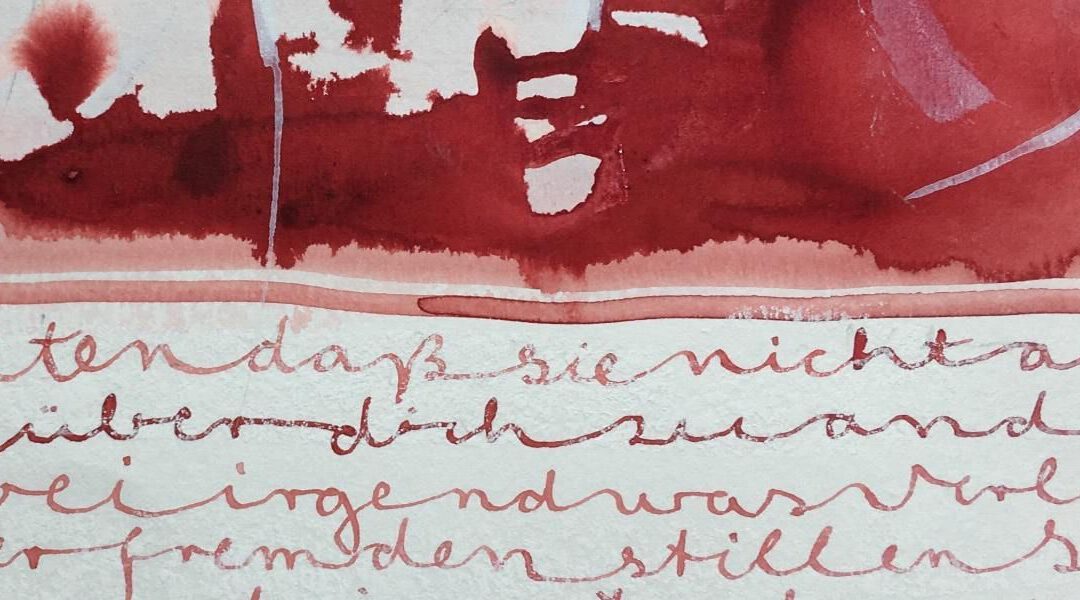 ten daß sie nicht a
über dich zu and
ei irgendwas Verl
er fremden stillen S